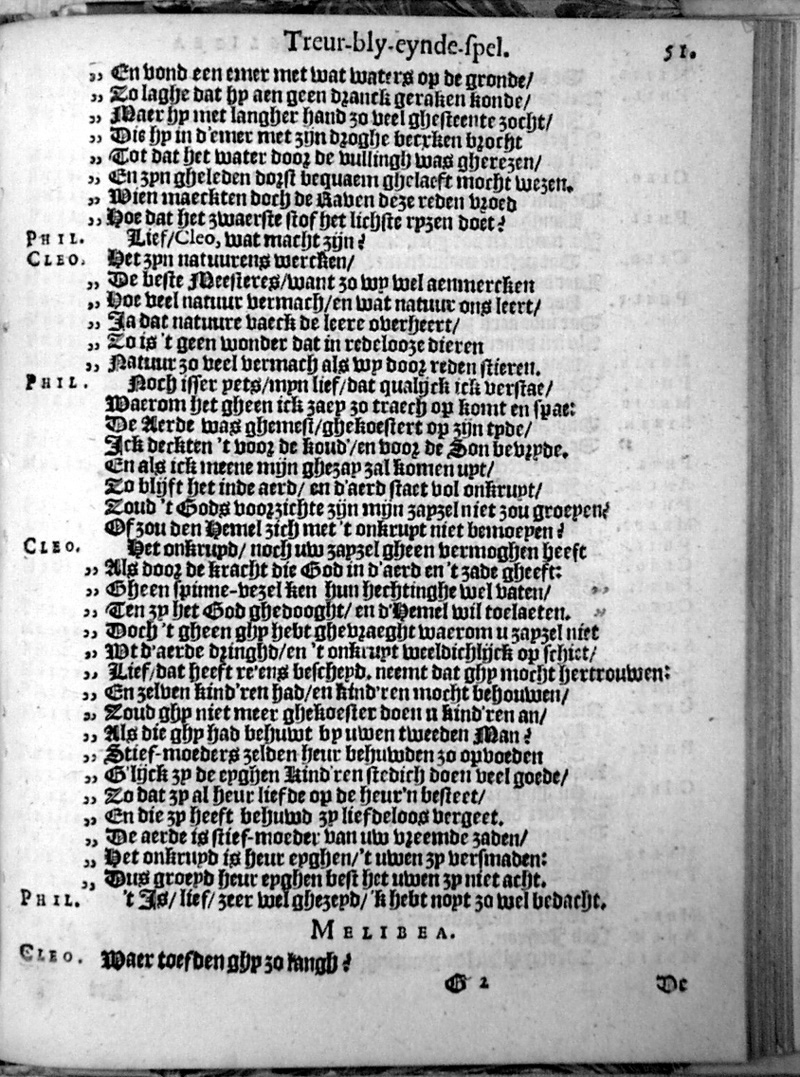 Treur-bly-eynde-spel. 51.
„ En vond een emer met wat waters op de gronde/
„ Zo laghe dat hy aen geen dranck geraken konde/
„ Maer hy met langher hand zo veel ghesteente zocht/
„ Die hy in d'emer met zijn droghe becxken brocht
„ Tot dat het water door de vullingh was gherezen/
„ En zyn gheleden dorst bequaem ghelaeft mocht wezen.
„ Wien maeckten doch de Raven deze reden vroed
„ Hoe dat het zwaerste stof het lichste ryzen doet?
PHIL. Lief/Cleo, wat macht zijn?
CLEO. Het zyn natuurens wercken/
„ De beste Meesteres/want zo wy wel aenmercken
„ Hoe veel natuur vermach/en wat natuur ons leert/
„ Ja dat natuure vaeck de leere overheert/
„ Zo is 't geen wonder dat in redelooze dieren
„ Natuur zo veel vermach als wy door reden stieren.
PHIL. Noch isser yets/myn lief/dat qualijck ick verstae/
Waerom het gheen ick zaey zo traech op komt en spae:
De Aerde was ghemest/ghekoestert op zijn tyde/
Ick deckten 't voor de koud'/en voor de Son bevryde.
En als ick meene mijn ghezay zal komen uyt/
Zo blijft het inde aerd/ en d'aerd staet vol onkruyt/
Zoud 't Gods voorzichte zijn mijn zayzel niet zou groeyen?
Of zou den Hemel zich met 't onkruyt niet bemoeyen?
CLEO. Het onkruyd/ noch uw zayzel gheen vermoghen heeft
„ Als door de kracht die God in d'aerd en 't zade gheeft:
„ Gheen spinne-vezel ken hun hechtinghe wel vaten/
„ Ten zy het God ghedooght/ en d'Hemel wil toelaeten.
„ Doch 't gheen ghy hebt ghevraeght waerom u zayzel niet
„ Wt d'aerde dringhd/en 't onkruyt weeldichlijck op schiet/
„ Lief/dat heeft re'ens bescheyd. neemt dat ghy mocht hertrouwen:
„ En zelven kind'ren had/en kind'ren mocht behouwen/
„ Zoud ghy niet meer ghekoester doen u kind'ren an/
„ Als die ghy had behuwt by uwen tweeden Man?
„ Stief-moeders zelden heur behuwden zo opvoeden
„ G'lijck zy de eyghen Kind'ren stedich doen veel goede/
„ Zo dat zy al heur liefde op de heur'n besteet/
„ En die zy heeft behuwd zy liefdeloos vergeet.
„ De aerde is stief-moeder van uw vreemde zaden/
„ Het onkruyd is heur eyghen/'t uwen zy versmaden:
„ Dus groeyd heur eyghen best het uwen zy niet acht.
PHIL. 't Is/ lief/ zeer wel ghezeyd/ 'k hebt noyt zo wel bedacht.
MELIBEA.
CLEO. Waer toefden ghy zo langh?
G 2 De